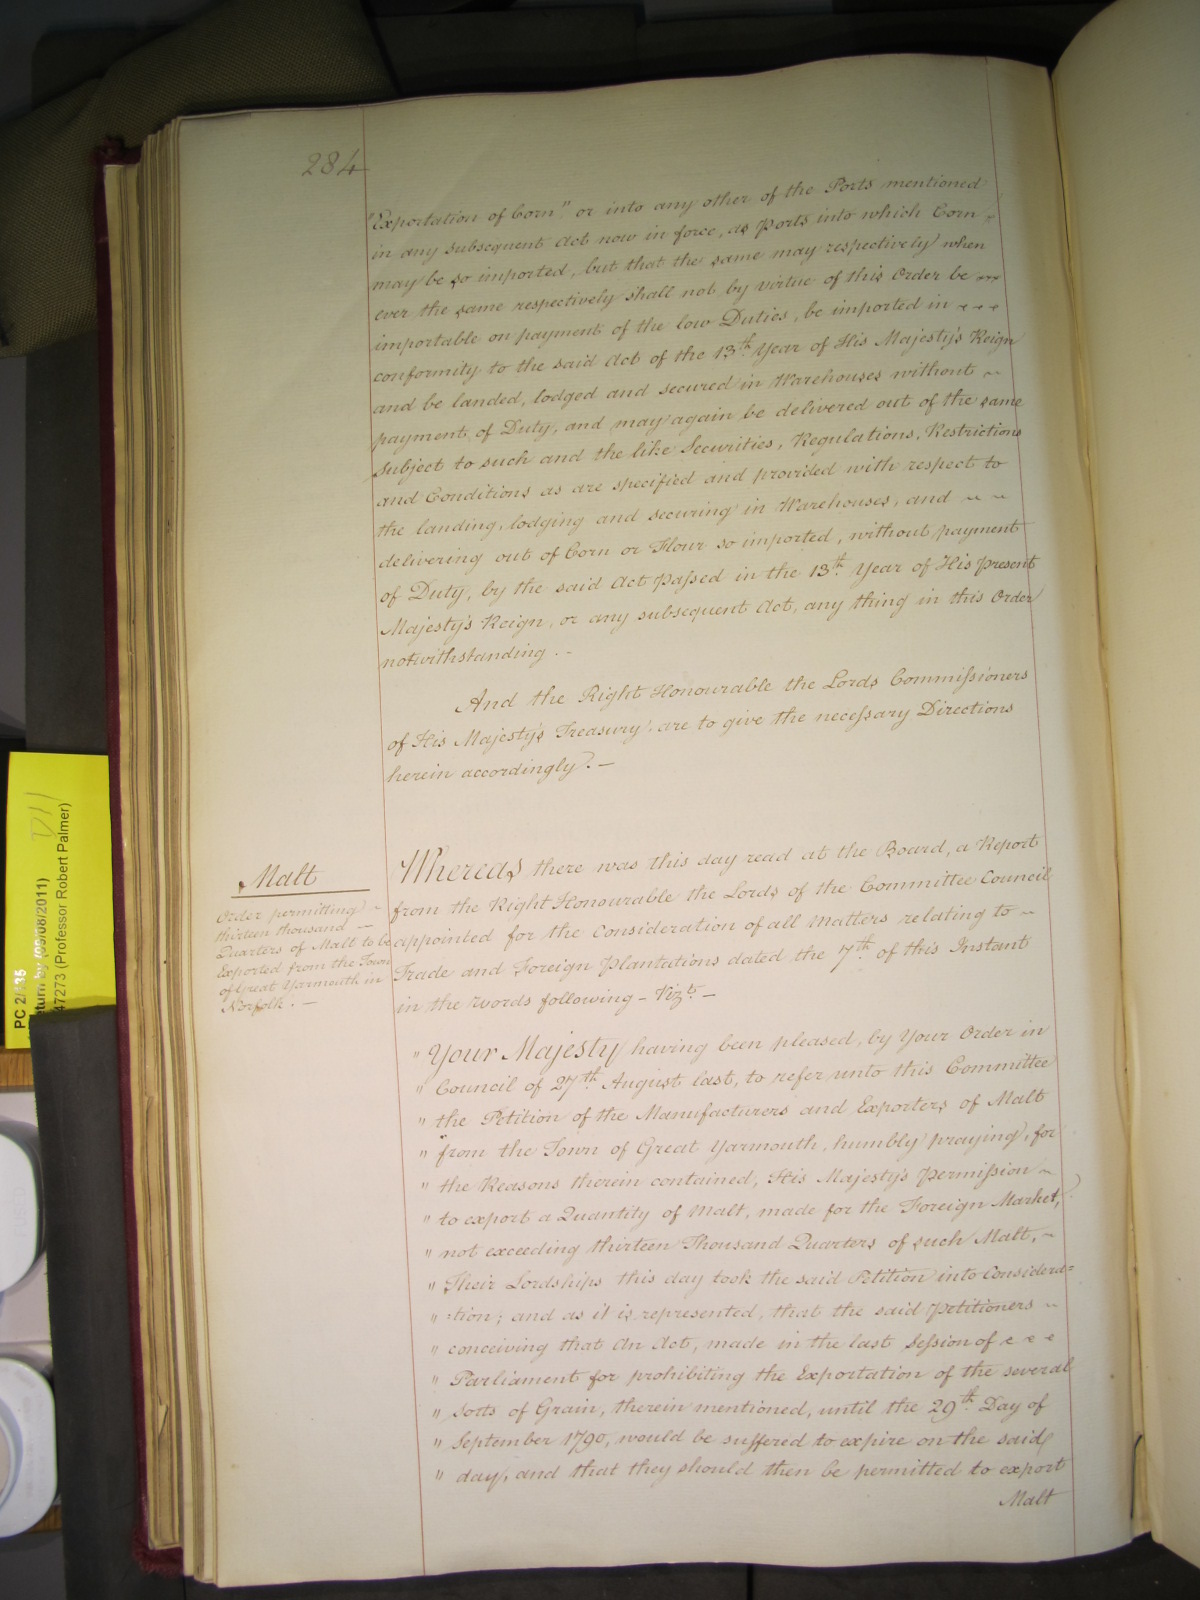 284
"Exportation of Corn" or into any other of the Ports mentioned
in any subsequent Act now in force, as Ports into which Corn
may be so imported, but that the same may respectively when
ever the same respectively shall not by virtue of this Order be
importable on payment of the low Duties, be imported in
conformity to the said Act of the 13th. Year of His Majesty's Reign
and be landed, lodged and secured in Warehouses without
payment of Duty, and may again be delivered out of the same
subject to such and the like Securities, Regulations, Restrictions
and Conditions as are specified and provided with respect to
the landing, lodging and securing in Warehouses, and
delivering out of Corn or Flour so imported, without payment
of Duty, by the said Act passed in the 13th. Year of His present
Majesty's Reign, or any subsequent Act, any thing in this Order
notwithstanding. -
And the Right Honourable the Lords Commissioners
of His Majesty's Treasury, are to give the necessary Directions
herein accordingly. -
Malt
Order permitting
thirteen thousand
Quarters of Malt to be
Exported from the Town
of Great Yarmouth in
Norfolk. -
Whereas there was this day read at the Board, a Report
from the Right Honourable the Lords of the Committee Council
appointed for the Consideration of all Matters relating to
Trade and Foreign Plantations dated the 7th. of this Instant
in the words following - Vizt. -
" Your Majesty having been pleased, by Your Order in
" Council of 27th. August last, to refer unto this Committee
" the Petition of the Manufacturers and Exporters of Malt
" from the Town of Great Yarmouth, humbly praying, for
" the Reasons therein contained, His Majesty's Permission
" to export a Quantity of Malt, made for the Foreign Market,
" not exceeding thirteen Thousand Quarters of such Malt, -
" Their Lordships this day took the said Petition into Considera=
" :tion; and as it is represented, that the said Petitioners
" conceiving that An Act, made in the last Session of
" Parliament for prohibiting the Exportation of the several
" Sorts of Grain, therein mentioned, until the 29th. Day of
" September 1790, would be suffered to expire on the said
" day, and that they should then be permitted to export
Malt
PC 2/135
return by (09/08/2011)
47273 (Professor Robert Palmer)
D11